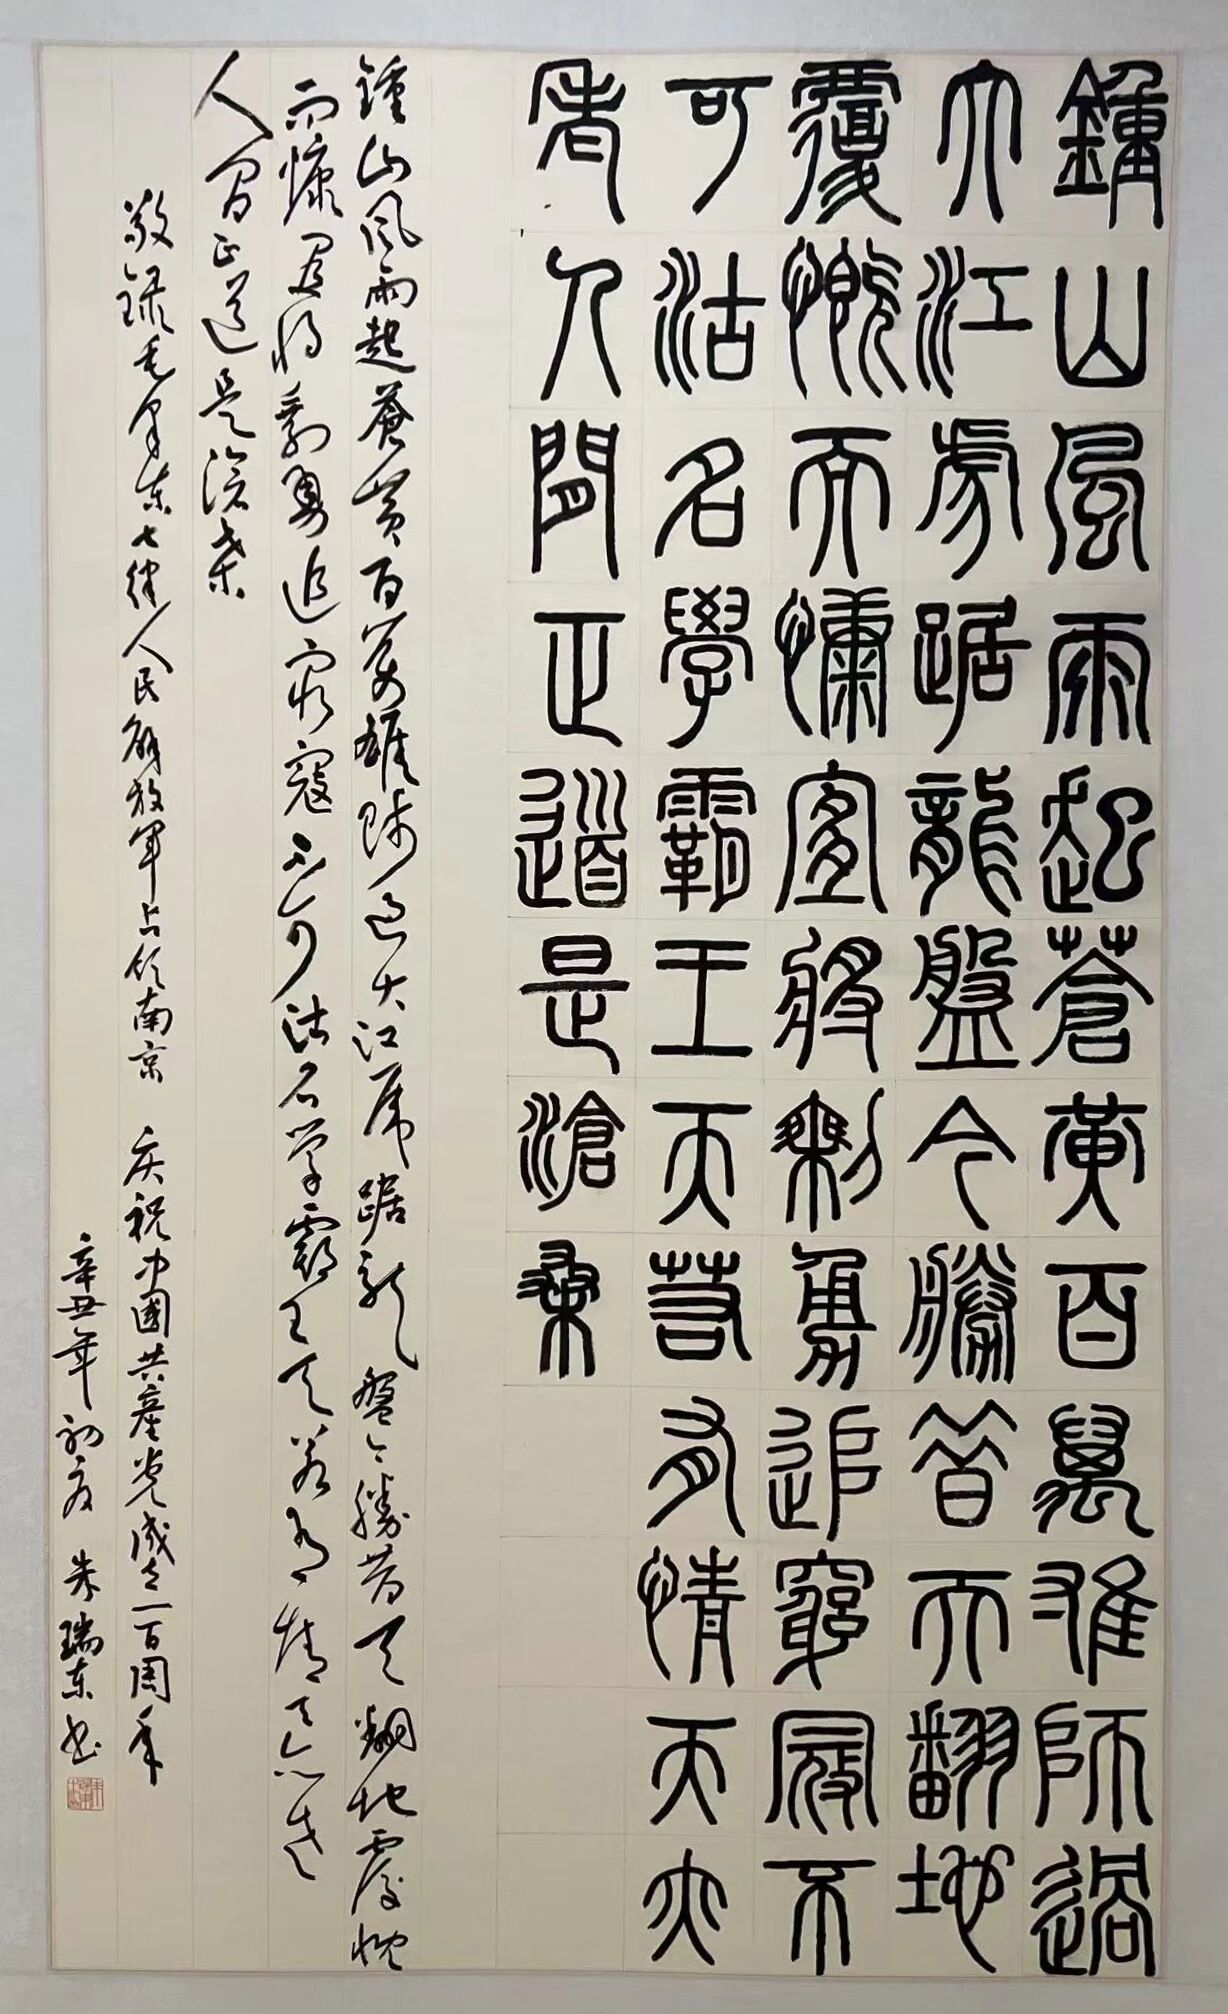 鍾山風雨起蒼黃百萬雄師過
大江虎踞龍盤今勝昔天翻地
覆慨而慷宜將剩勇追窮寇不
可沽名學霸王天若有情天亦
老人間正道是滄桑
鍾山风雨起蒼黄百万雄师过大江虎踞龙盘今勝昔天翻地覆慨
而慷宜将剩勇追穷寇不可沽名学霸王天若有情天亦老
人间正道是滄桑
敬録毛泽东七律人民解放军占领南京 庆祝中國共產党成立一百周年
辛丑年初夏 朱瑞东书